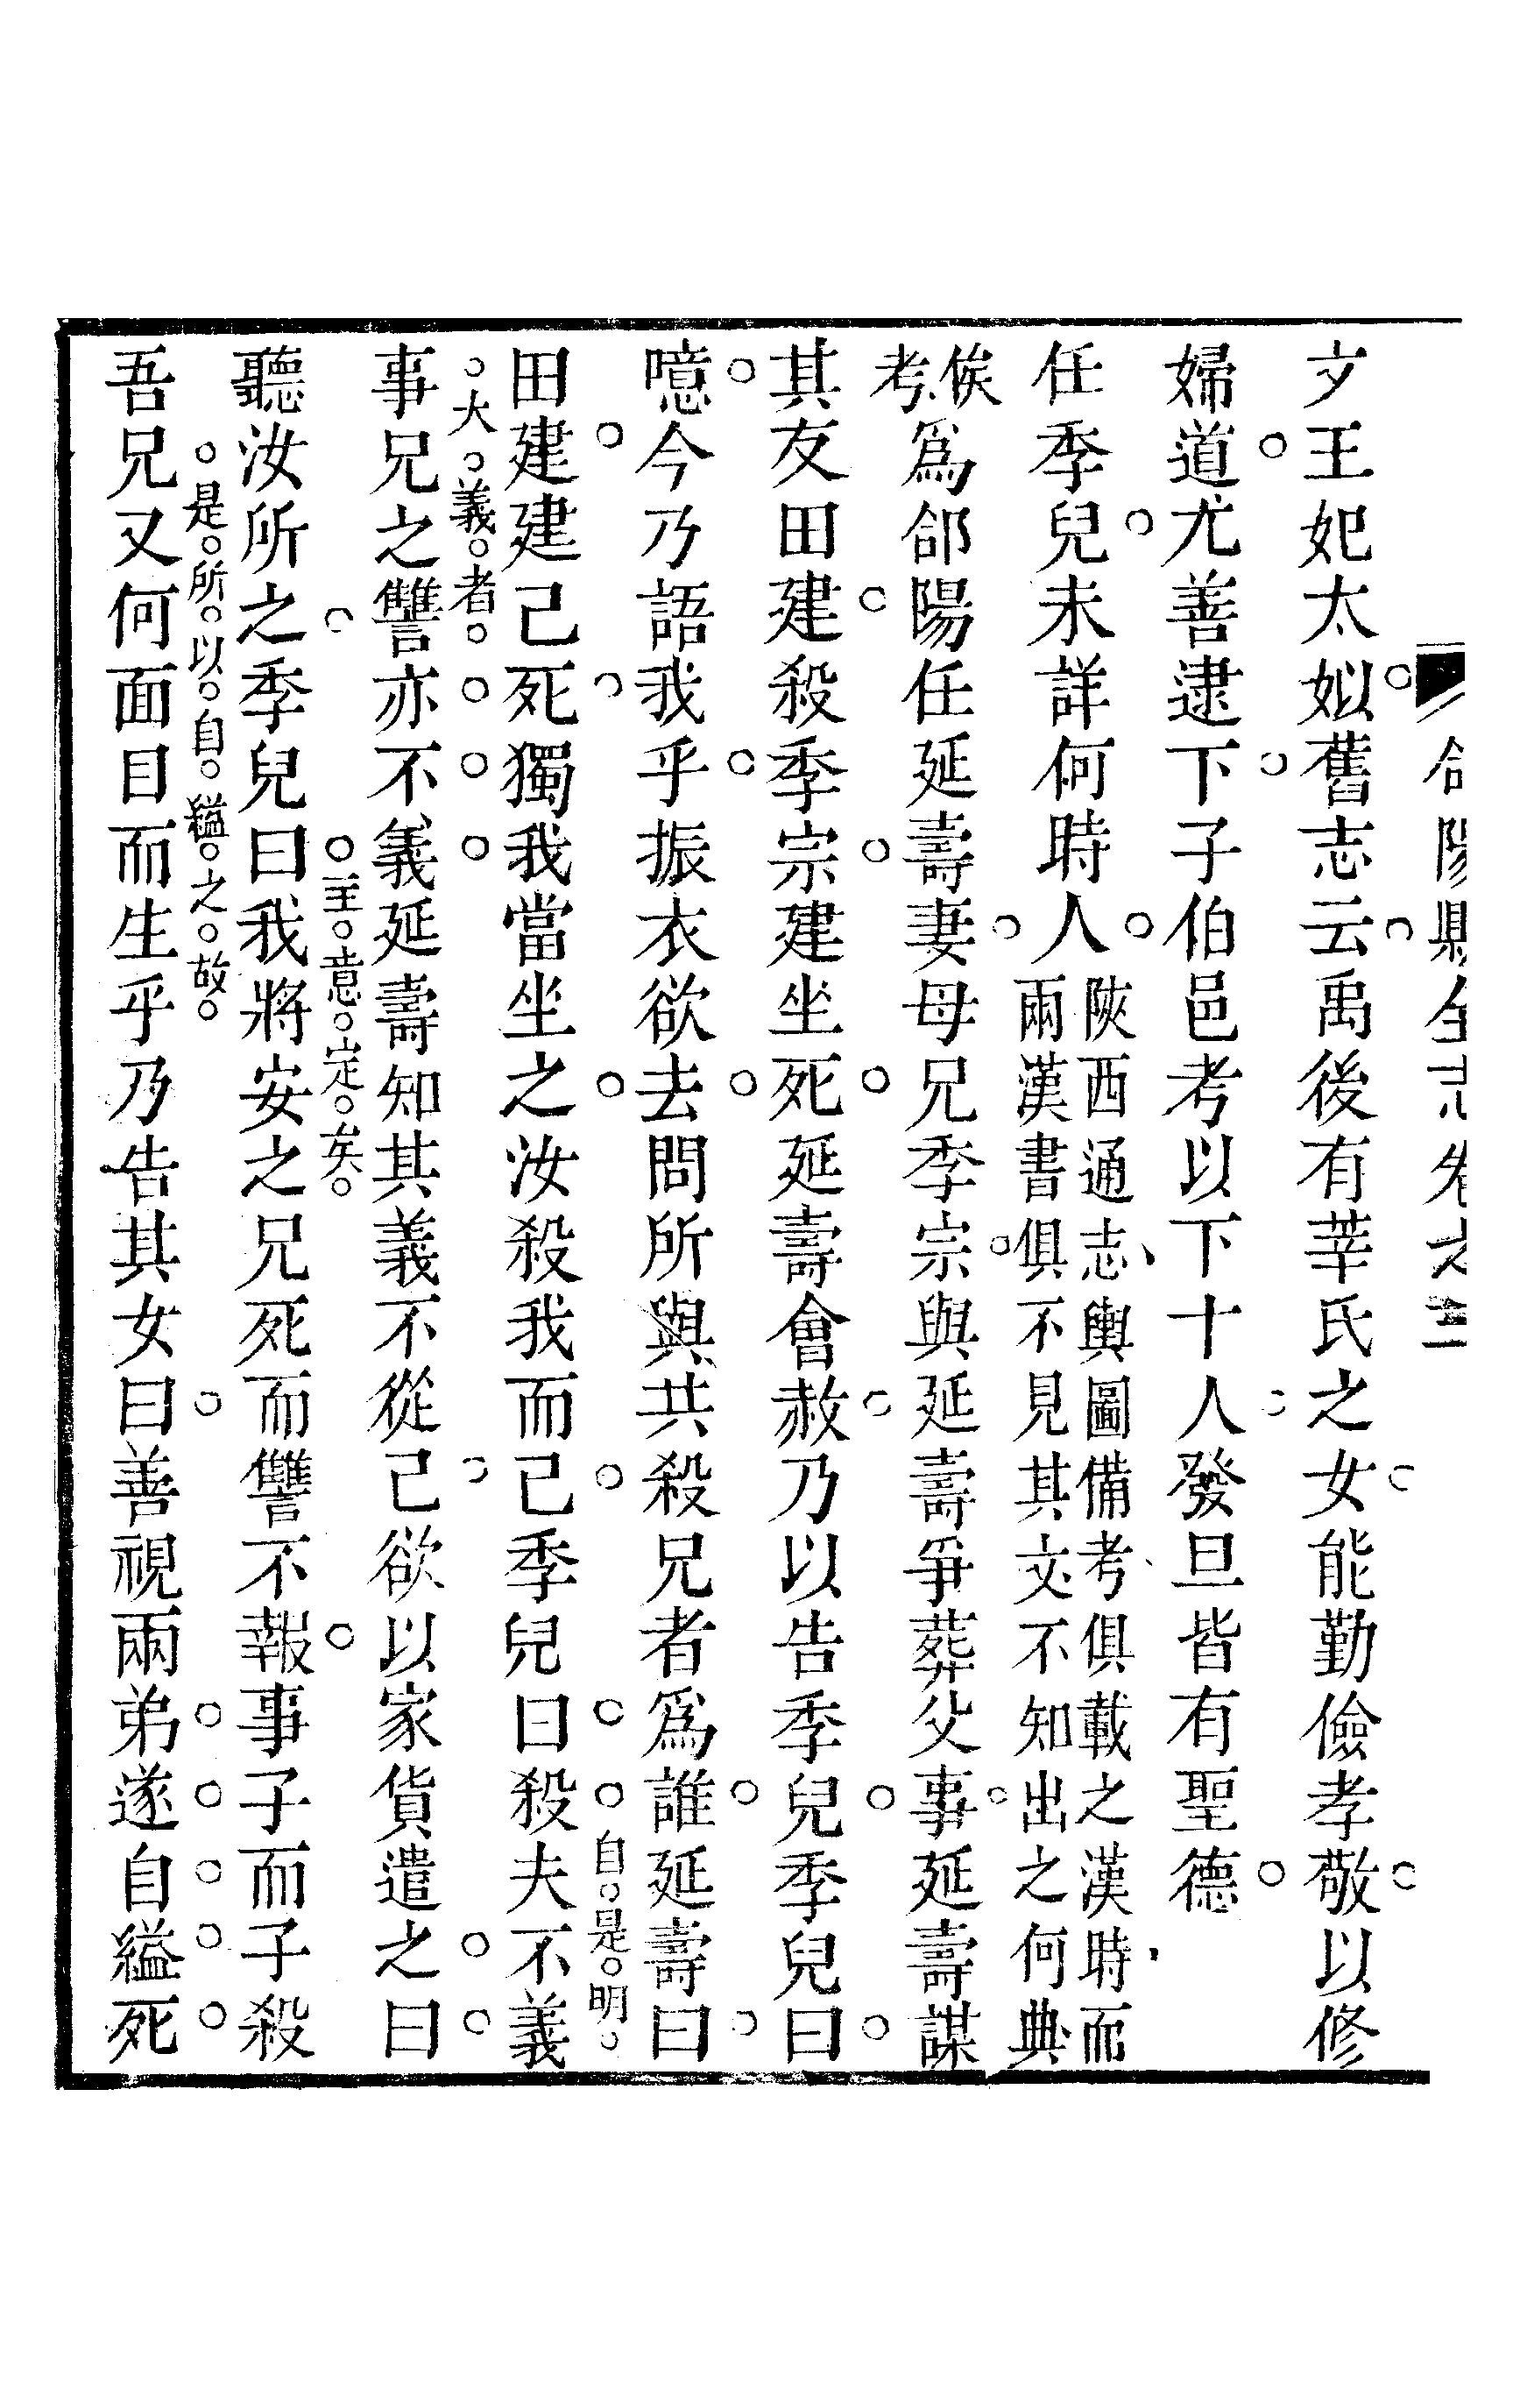 郃陽縣全志卷之三
文王妃太姒舊志云禹後有莘氏之女能勤儉孝敬以修
婦道尤善逮下子伯邑考以下十人發旦皆有聖德
任季兒未詳何時人陝西通志輿圖備考俱載之漢時而
兩漢書俱不見其文不知出之何典
俟
考
爲郃陽任延壽妻母兄季宗與延壽爭葬父事延壽謀
其友田建殺季宗建坐死延壽會赦乃以告季兒季兒曰
噫今乃語我乎振衣欲去問所與共殺兄者爲誰延壽曰
田建建已死獨我當坐之汝殺我而已季兒曰殺夫不義
自是明
大義者
事兄之讐亦不義延壽知其義不從己欲以家貨遣之曰
主意定矣
聽汝所之季兒曰我將安之兄死而讐不報事子而子殺
是所以自縊之故
吾兄又何面目而生乎乃告其女曰善視兩弟遂自縊死